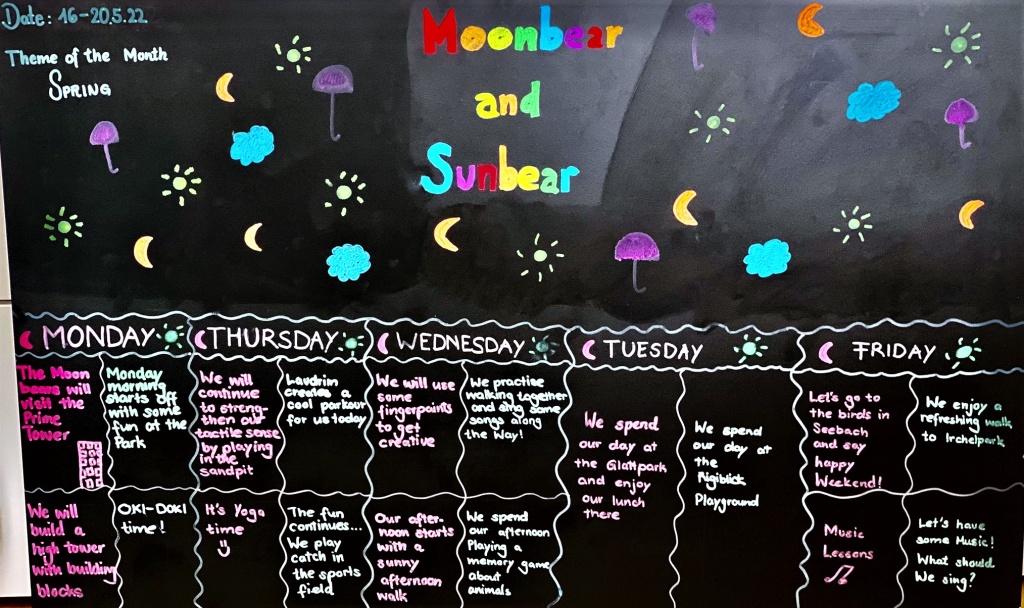 Date: 16-20.5.22
Theme of the Month
SPRING
Moonbear
and
Sunbear
MONDAY
THURSDAY
WEDNESDAY
TUESDAY
FRIDAY
The Moon
bears will
visit the
Prime
Tower
Monday
morning
starts off
with some
fun at the
Park
We will
continue
to streng-
then our
tactile sense
by playing
in the
sandpit
Laudrim
creates a
cool parkour
for us today
We will use
some
fingerpaints
to get
creative
We practise
walking together
and sing some
songs along
the Way!
We spend
our day at
the Glattpark
and enjoy
our lunch
there
We spend
our day at
the
Rigiblick
Playground
Let's go to
the birds in
Seebach
and say
happy
Weekend!
We enjoy a
refreshing walk
to Irchelpark
We will
build a
high tower
with building
blocks
OKI-DOKI
time!
It's Yoga
time
The fun
continues...
We play
catch in
the sports
field
Our after-
noon starts
with a
sunny
afternoon
walk
We spend
our afternoon
Playing a
memory game
about
animals
Music
Lessons
Let's have
some Music!
What should
We sing?